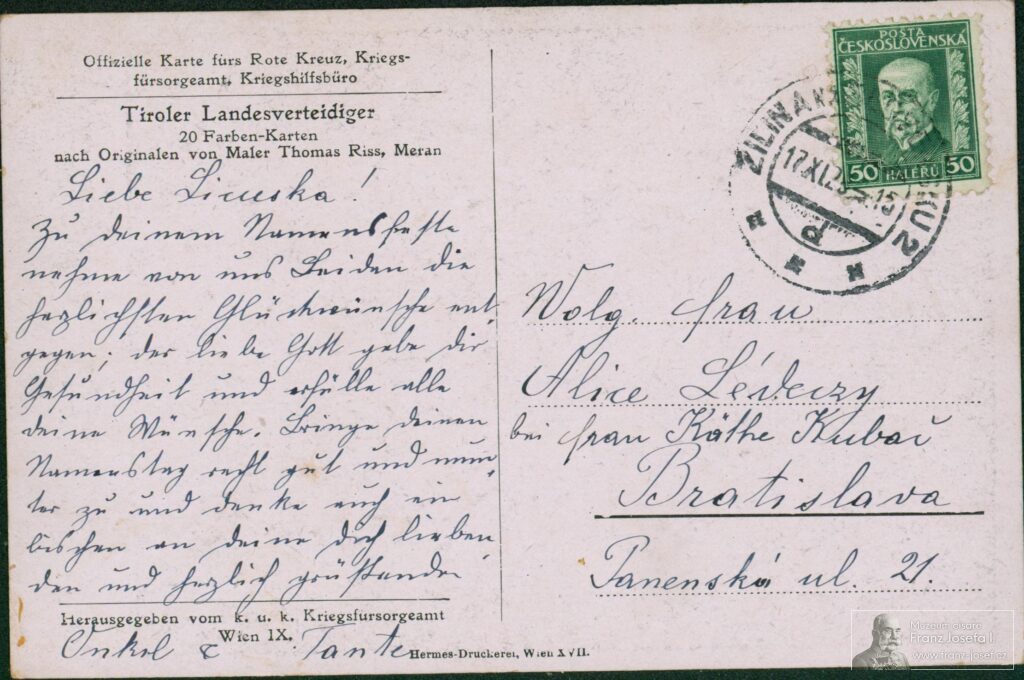 Offizielle Karte fürs Rote Kreuz, Kriegs-
fürsorgeamt, Kriegshilfsbüro
Tiroler Landesverteidiger
20 Farben-Karten
nach Originalen von Maler Thomas Riss, Meran
Liebe Liceuska!
Zu deinem Namensfeste
nehme von uns Beiden die
herzlichsten Glückwünsche ent-
gegen; der liebe Gott gebe dir
Gesundheit und erfülle alle
deine Wünsche. Bringe deinen
Namenstag recht gut und mun-
ter zu und denke auch ein
bischen an deine dich lieben-
den und herzlich grüßenden
Herausgegeben vom k. u. k. Kriegsfürsorgeamt
Wien IX.
Onkel & Tante
Hermes-Druckerei, Wien XVII.
POSTA
ČESKOSLOVENSKÁ
50 HALÉŘŮ 50
ŽILINA
17.XI.2
15
2
P
Wolg. Frau
Alice Lédeczy
bei Frau Käthe Kubač
Bratislava
Panenská ul. 21.
Muzeum císaře
Franz Josefa I
www.franz-josef.cz